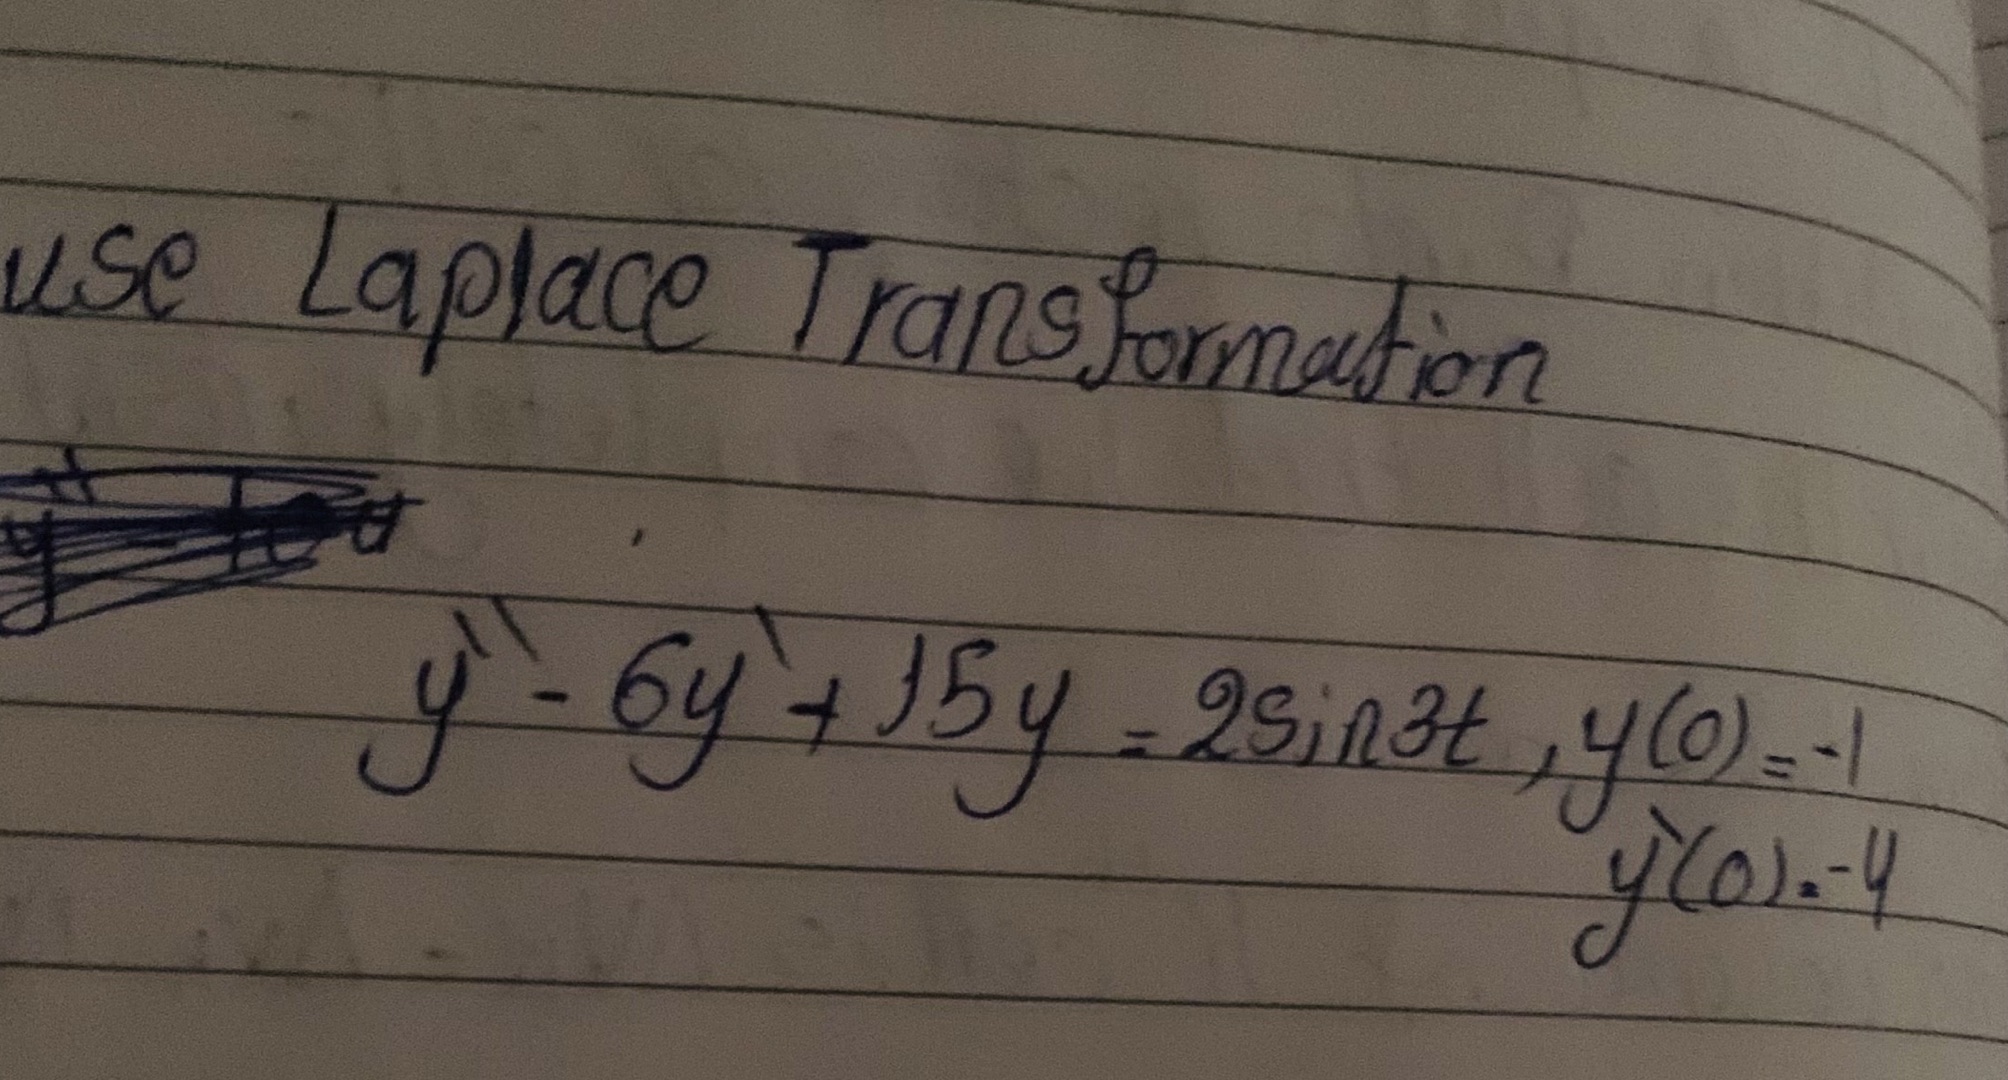 use Laplace Transformation
y`` - 6y` + 15y = 2sin3t , y(0) = -1
y`(0) = -4